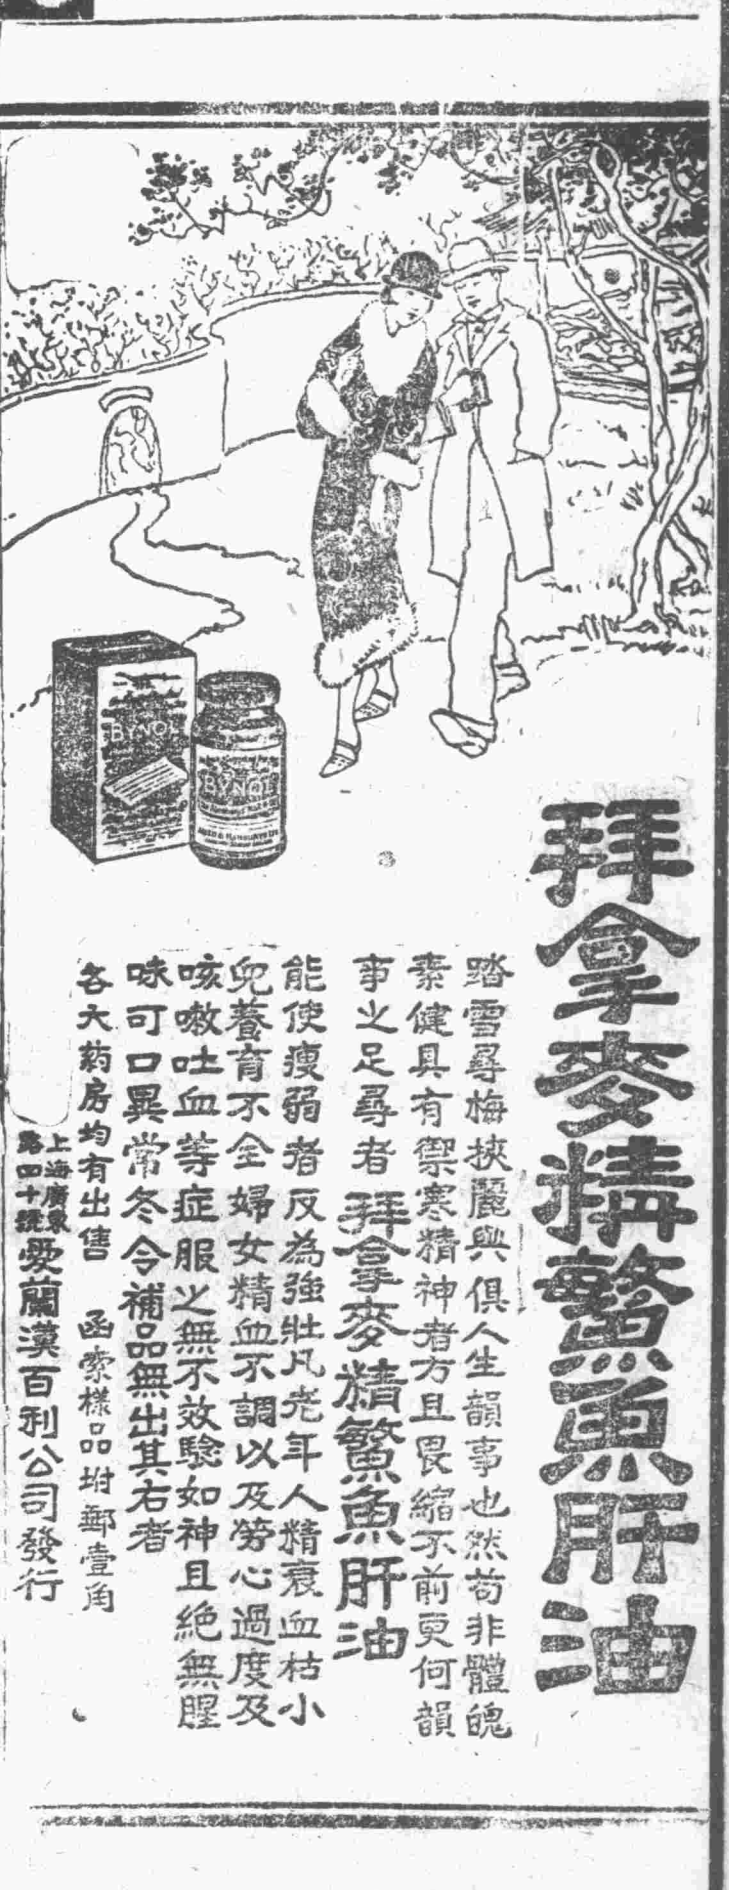 拜拿麥精鰵魚肝油
踏雪尋梅挾麗與俱人生韻事也然苟非體魄
素健具有禦寒精神者方且畏縮不前更何韻
事之足尋者 拜拿麥精鰵魚肝油
能使瘦弱者反為強壯凡老年人精衰血枯小
兒養育不全婦女精血不調以及勞心過度及
咳嗽吐血等症服之無不效驗如神且絕無腥
味可口異常冬令補品無出其右者
各大葯房均有出售 函索樣品坿郵壹角
上海廣東
路四十號
愛蘭漢百利公司發行
BYNOL
BYNOL